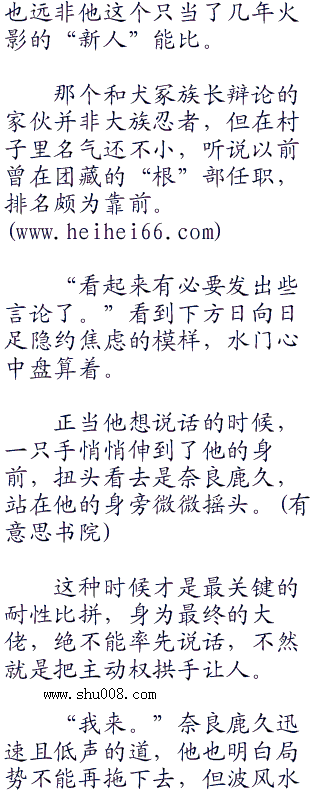 也远非他这个只当了几年火
影的“新人”能比。
那个和犬冢族长辩论的
家伙并非大族忍者，但在村
子里名气还不小，听说以前
曾在团藏的“根”部任职，
排名颇为靠前。
(www.heihei66.com)
“看起来有必要发出些
言论了。”看到下方日向日
足隐约焦虑的模样，水门心
中盘算着。
正当他想说话的时候，
一只手悄悄伸到了他的身
前，扭头看去是奈良鹿久，
站在他的身旁微微摇头。(有
意思书院)
这种时候才是最关键的
耐性比拼，身为最终的大
佬，绝不能率先说话，不然
就是把主动权拱手让人。
www.shu008.com
“我来。”奈良鹿久迅
速且低声的道，他也明白局
势不能再拖下去，但波风水